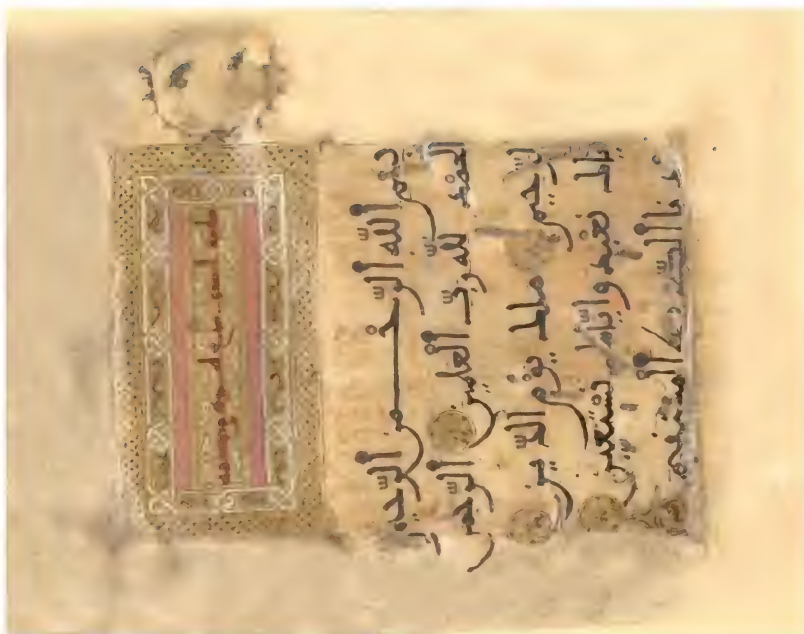 بسم ٱللَّه ٱلرَّحمن ٱلرَّحيم
الحمد للَّه ربّ ٱلعلمين ٱلرَّحمن
الرَّحيم ملك يوم ٱلدّين
إياك نعبد وإيّاك نستعين
هدنا ٱلصّرط ٱلمستقيم